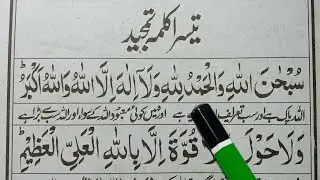 تیسرا کلمہ تمجید
سُبْحٰنَ اللّٰهِ وَالْحَمْدُ لِلّٰهِ وَلَآ اِلٰهَ اِلَّا اللّٰهُ وَاللّٰهُ اَكْبَرُ
اللہ پاک ہے اور سب تعریف اللہ کے لئے ہے اور نہیں کوئی معبود اللہ کے سوا اور اللہ سب سے بڑا ہے
وَلَا حَوْلَ وَلَا قُوَّةَ اِلَّا بِاللّٰهِ الْعَلِيِّ الْعَظِيْمِ